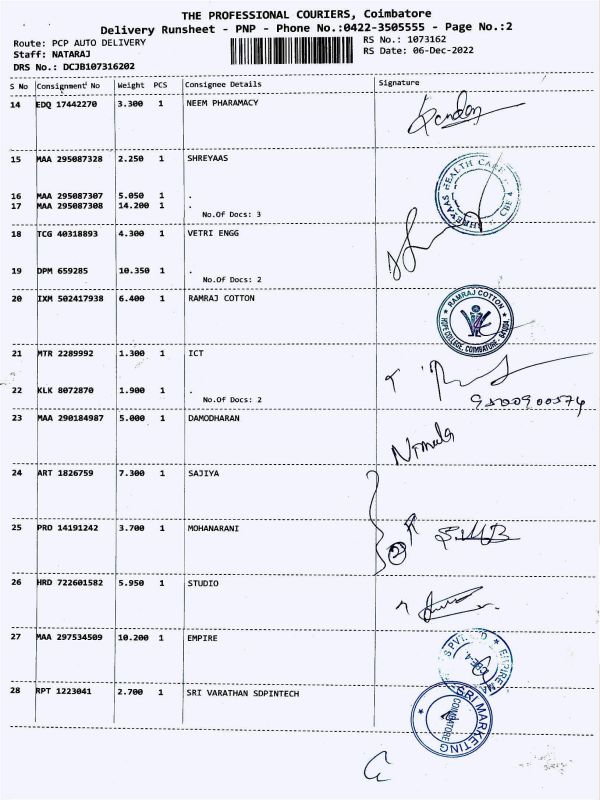 THE PROFESSIONAL COURIERS, Coimbatore
Delivery Runsheet - PNP - Phone No.:0422-3505555 - Page No.:2
Route: PCP AUTO DELIVERY RS No.: 1073162
Staff: NATARAJ RS Date: 06-Dec-2022
DRS No.: DCJB107316202
S No Consignment No Weight PCS Consignee Details Signature
14 EDQ 17442270 3.300 1 NEEM PHARAMACY
15 MAA 295087328 2.250 1 SHREYAAS
SHREYAAS HEALTH CARE CBE 4
16 MAA 295087307 5.050 1 .
17 MAA 295087308 14.200 1 .
No.Of Docs: 3
18 TCG 40318893 4.300 1 VETRI ENGG
19 DPM 659285 10.350 1 .
No.Of Docs: 2
20 IXM 502417938 6.400 1 RAMRAJ COTTON
RAMRAJ COTTON
HOPE COLLEGE, COIMBATORE
21 MTR 2289992 1.300 1 ICT
22 KLK 8072870 1.900 1 .
No.Of Docs: 2
23 MAA 290184987 5.000 1 DAMODHARAN
Nirmala
24 ART 1826759 7.300 1 SAJIYA
25 PRO 14191242 3.700 1 MOHANARANI
26 HRD 722601582 5.950 1 STUDIO
27 MAA 297534509 10.200 1 EMPIRE
EMPIRE
CBE-4.
28 RPT 1223041 2.700 1 SRI VARATHAN SDPINTECH
SRI MARKETING
COIMBATORE